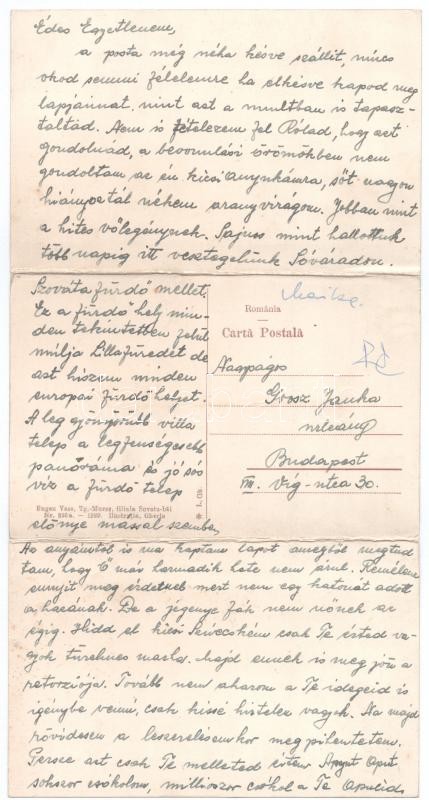 Édes Egyetlenem,
a posta még néha késve szállit, nincs
okod semmi félelemre ha elkésve kapod meg
lapjaimat, mint azt a multban is tapasz-
taltad. Nem is fételezem fel Rólad, hogy azt
gondolnád, a bevonulási örömökben nem
gondoltam az én kicsi anyukámra, sőt nagyon
hiányoztál nékem aranyvirágom. Jobban mint
a hites vőlegénynek. Sajnos mint hallottuk
több napig itt vesztegelünk Sóváradon.
Szováta fürdő mellet.
Ez a fürdő hely min-
den tekintetben felül
mulja Lillafüredet de
azt hiszem minden
europai fürdő helyet.
A leg gyönyörűbb villa
telep a legfenségesebb
panoráma és jó sós
víz a fürdő telep
Eugen Vass, Tg.-Mureș, filiala Sovata-băi
előnye mással szemben,
România
Cartă Postală
Nagyságos
Grosz Janka
urleány
Budapest
Vig-utca 30.
Az anyámtól is ma kaptam lapot amegből megtud
tam, hogy Ő már harmadik hete nem árul. Remélem
ennyit meg érdekel mert nem egy katonát adott
a hazának. De a jegenye fák nem nőnek az
égig. Hidd el kicsi Szivecském csak Te érted va-
gyok türelmes masla. Majd ennek is meg jön a
retorziója. Tovább nem akarom a Te idegeid is
igénybe venni, csak kissé hirtelen vagyok. Na majd
rövidesen a leszerelésemkor meg pihentetem.
Persze azt csak Te melletted értem Anyut Aput
sokszor csókolom, milliószor csókol a Te Apukád.